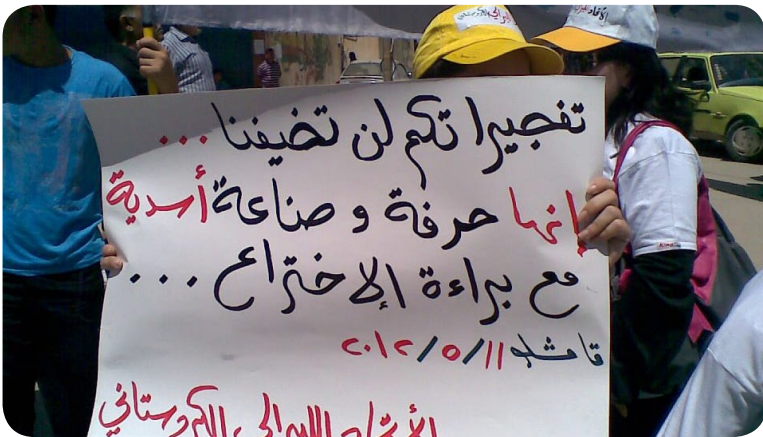 تفجيراتكم لن تخيفنا...
إنها حرفة و صناعة أسدية
مع براءة الإختراع...
قامشلو ٢٠١٢/٥/١١
الاتحاد الليبرالي الكردستاني